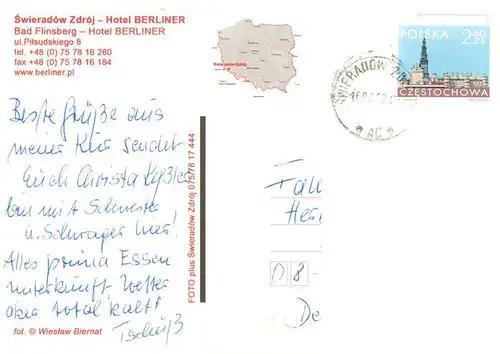 Świeradów Zdrój – Hotel BERLINER
Bad Flinsberg – Hotel BERLINER
ul,Piłsudskiego 8
tel, +48 (0) 75 78 16 260
fax +48 (0) 75 78 16 184
www.berliner.pl
POLSKA 2,40 ZŁ
CZĘSTOCHOWA
ŚWIERADÓW ZDR
Beste Grüße aus
meiner Kur sendet
Euch Christa
bin mit Schwester
u. Schwager hier!
Alles prima Essen
Unterkunft Wetter
aber total kalt!
Tschüß
fot. © Wiesław Biernat
FOTO plus Świeradów Zdrój 075/78 17 444
Fa
Her
D 8
De